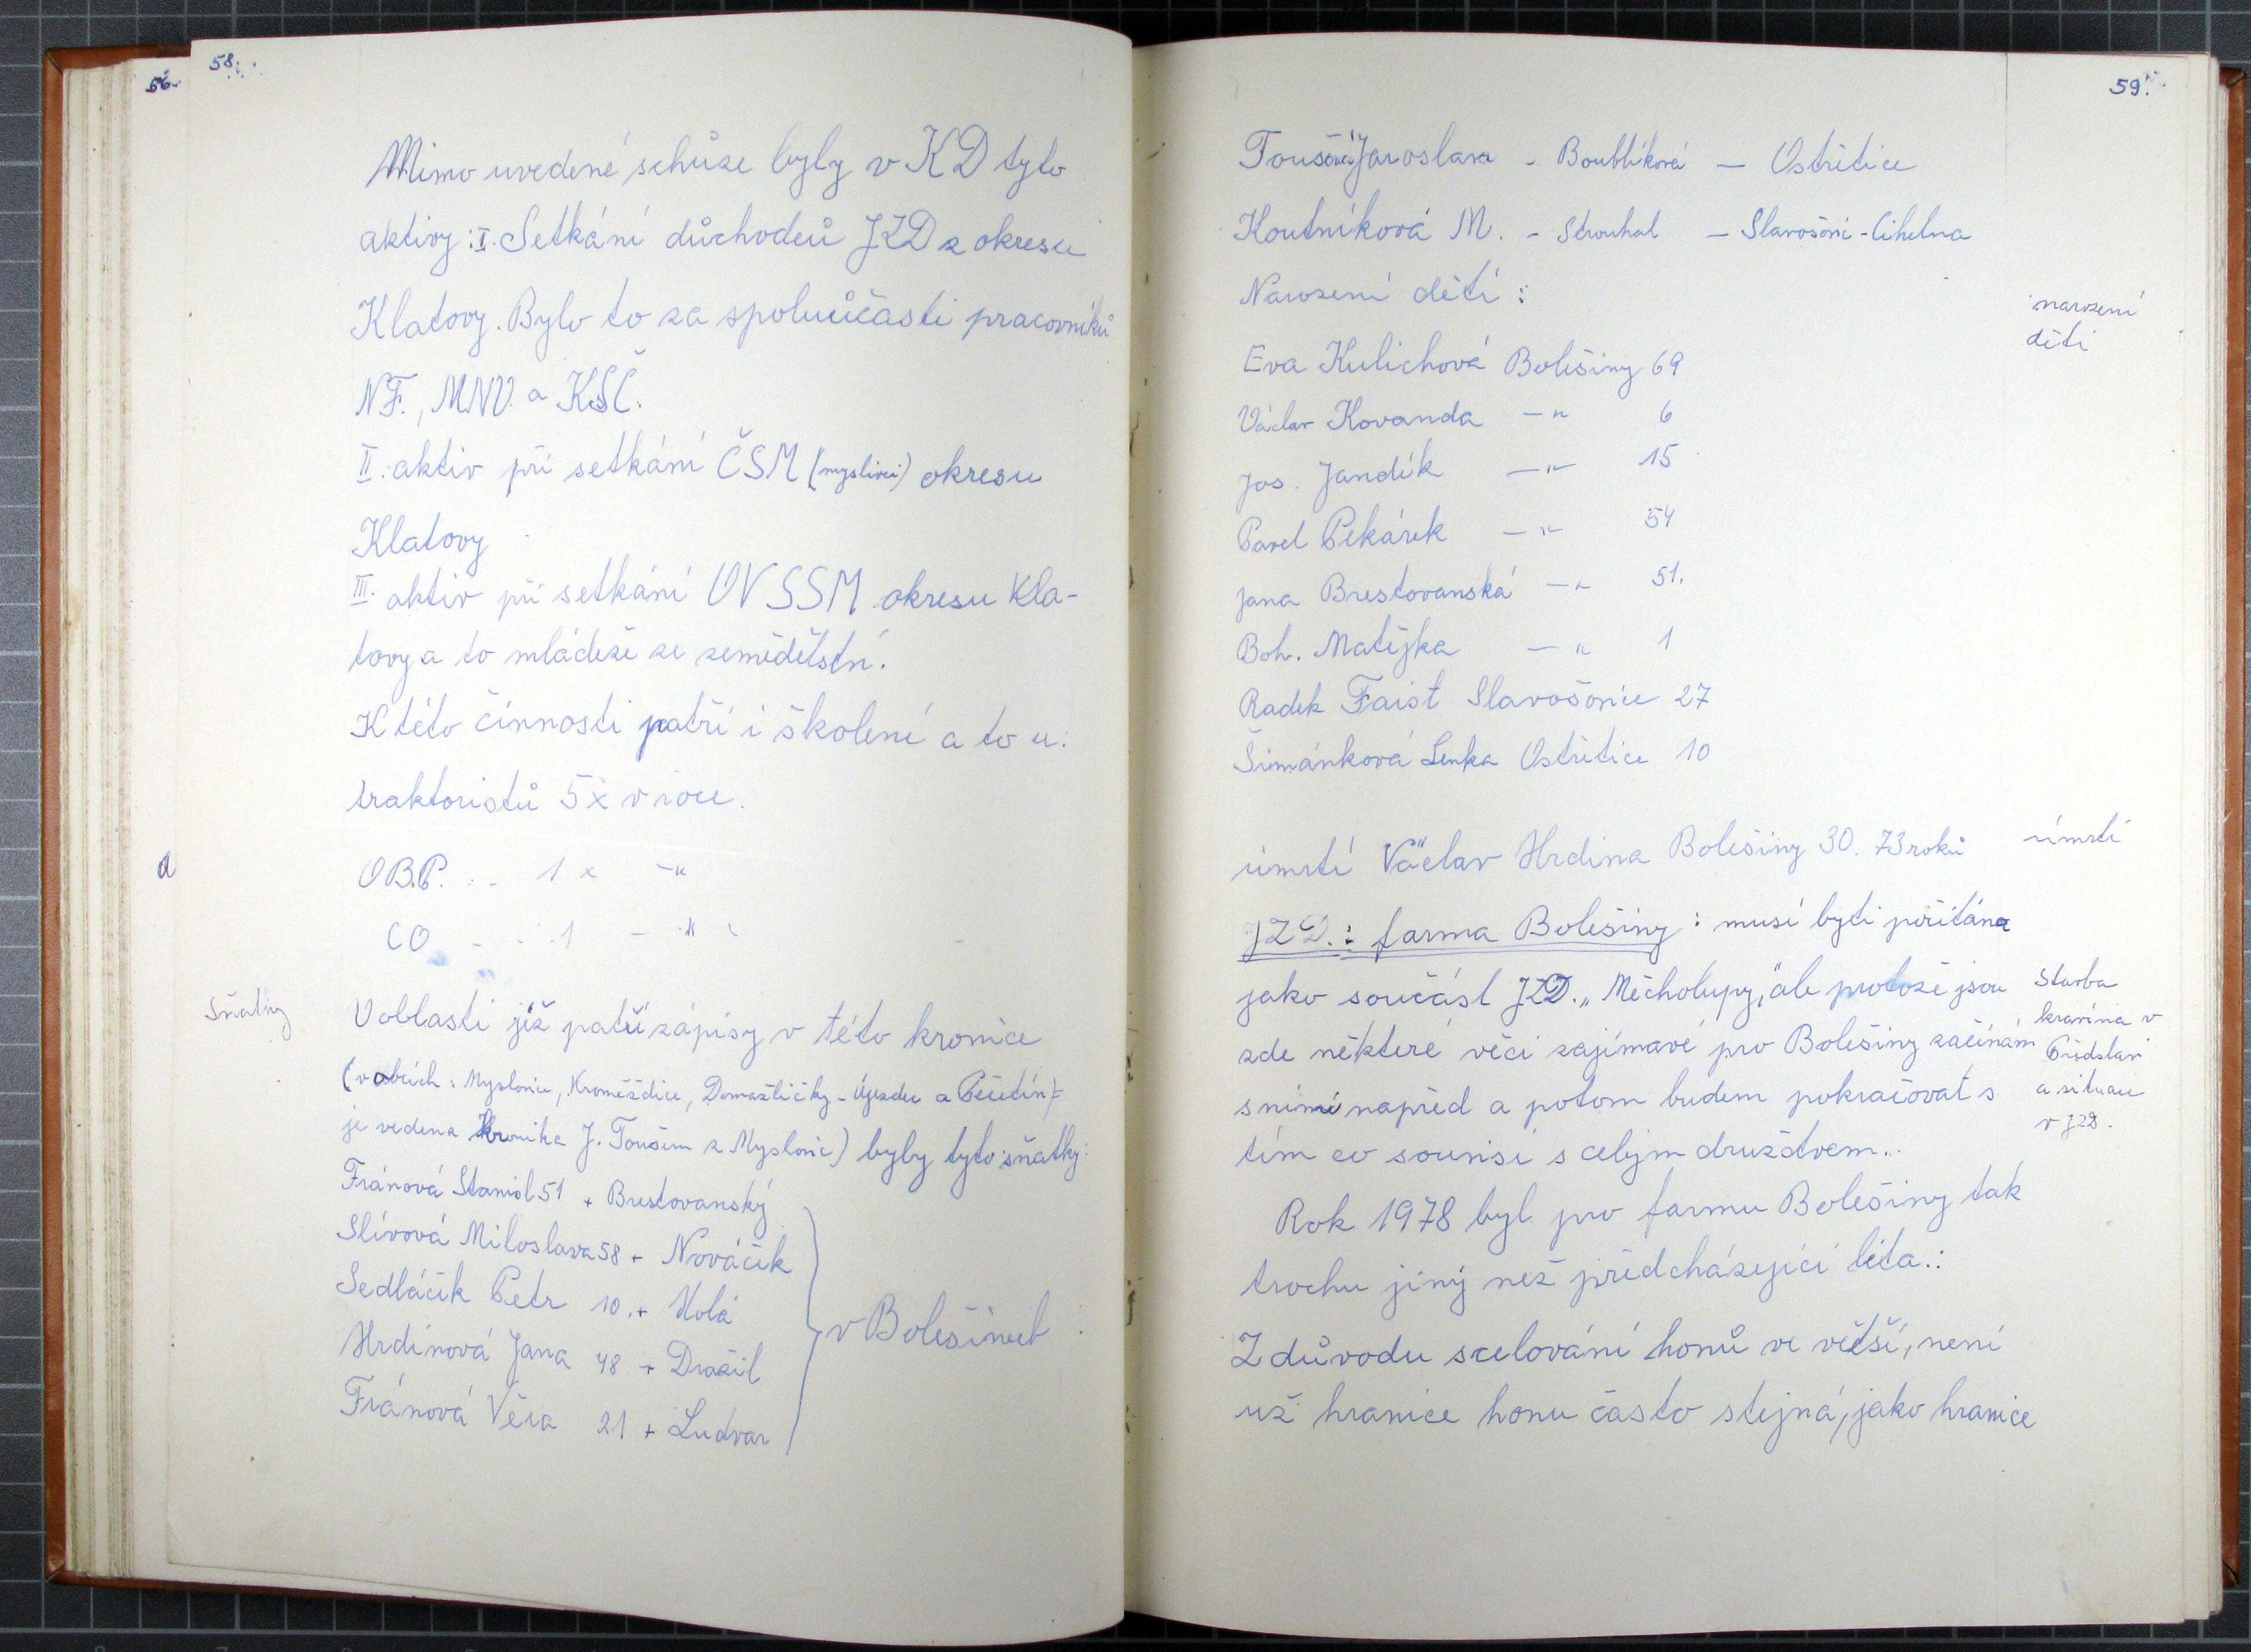 56.
58.
Mimo uvedené schůze byly v KD tyto
aktivy: I. Setkání důchodců JZD z okresu
Klatovy. Bylo to za spoluúčasti pracovníků
NF., MNV. a KSČ.
II. aktiv při setkání ČSM (myslivci) okresu
Klatovy
III. aktiv při setkání OV SSM okresu Kla-
tovy a to mládeže ze zemědělství.
K této činnosti patří i školení a to u:
traktoristů 5x v roce.
OBP. . . 1 x —"
CO - - . 1 — "
Sňatky
V oblasti již patří zápisy v této kronice
(v obcích: Myslovice, Kroměždice, Domažličky - Újezdec a Pečetín)=
je vedena Kronika J. Toušem z Myslovic) byly tyto sňatky:
Fránová Stanisl 51 + Brestovanský
Slívová Miloslava 58 + Nováček
Sedláček Petr 10. + Holá
Hrdinová Jana 48 + Dražil
Fránová Věra 21 + Ludvar
v Bolešinech
59.
Toušová Jaroslava - Boublíková — Ostřetice
Koutníková M. - Strouhal — Slavošovic - Cihelna
Narození dětí :
narození
děti
Eva Kulichová Bolešiny 69
Václav Kovanda —" 6
Jos. Jandík —" 15
Pavel Pekárek —" 54
Jana Brestovanská —" 51.
Boh. Matějka —" 1
Radek Faist Slavošovice 27
Šimánková Lenka Ostřetice 10
úmrtí Václav Hrdina Bolešiny 30. 73 roků
úmrtí
JZD.: farma Bolešiny: musí byti počítána
jako součást JZD. „Měcholupy," ale protože jsou
zde některé věci zajímavé pro Bolešiny začínám
s nimi napřed a potom budem pokračovat s
tím co souvisí s celým družstvem..
Stavba
kravína v
Předslavi
a situace
v JZD.
Rok 1978 byl pro farmu Bolešiny tak
trochu jiný než předcházející léta.:
Z důvodu scelování honů ve větší, není
už hranice honu často stejná, jako hranice